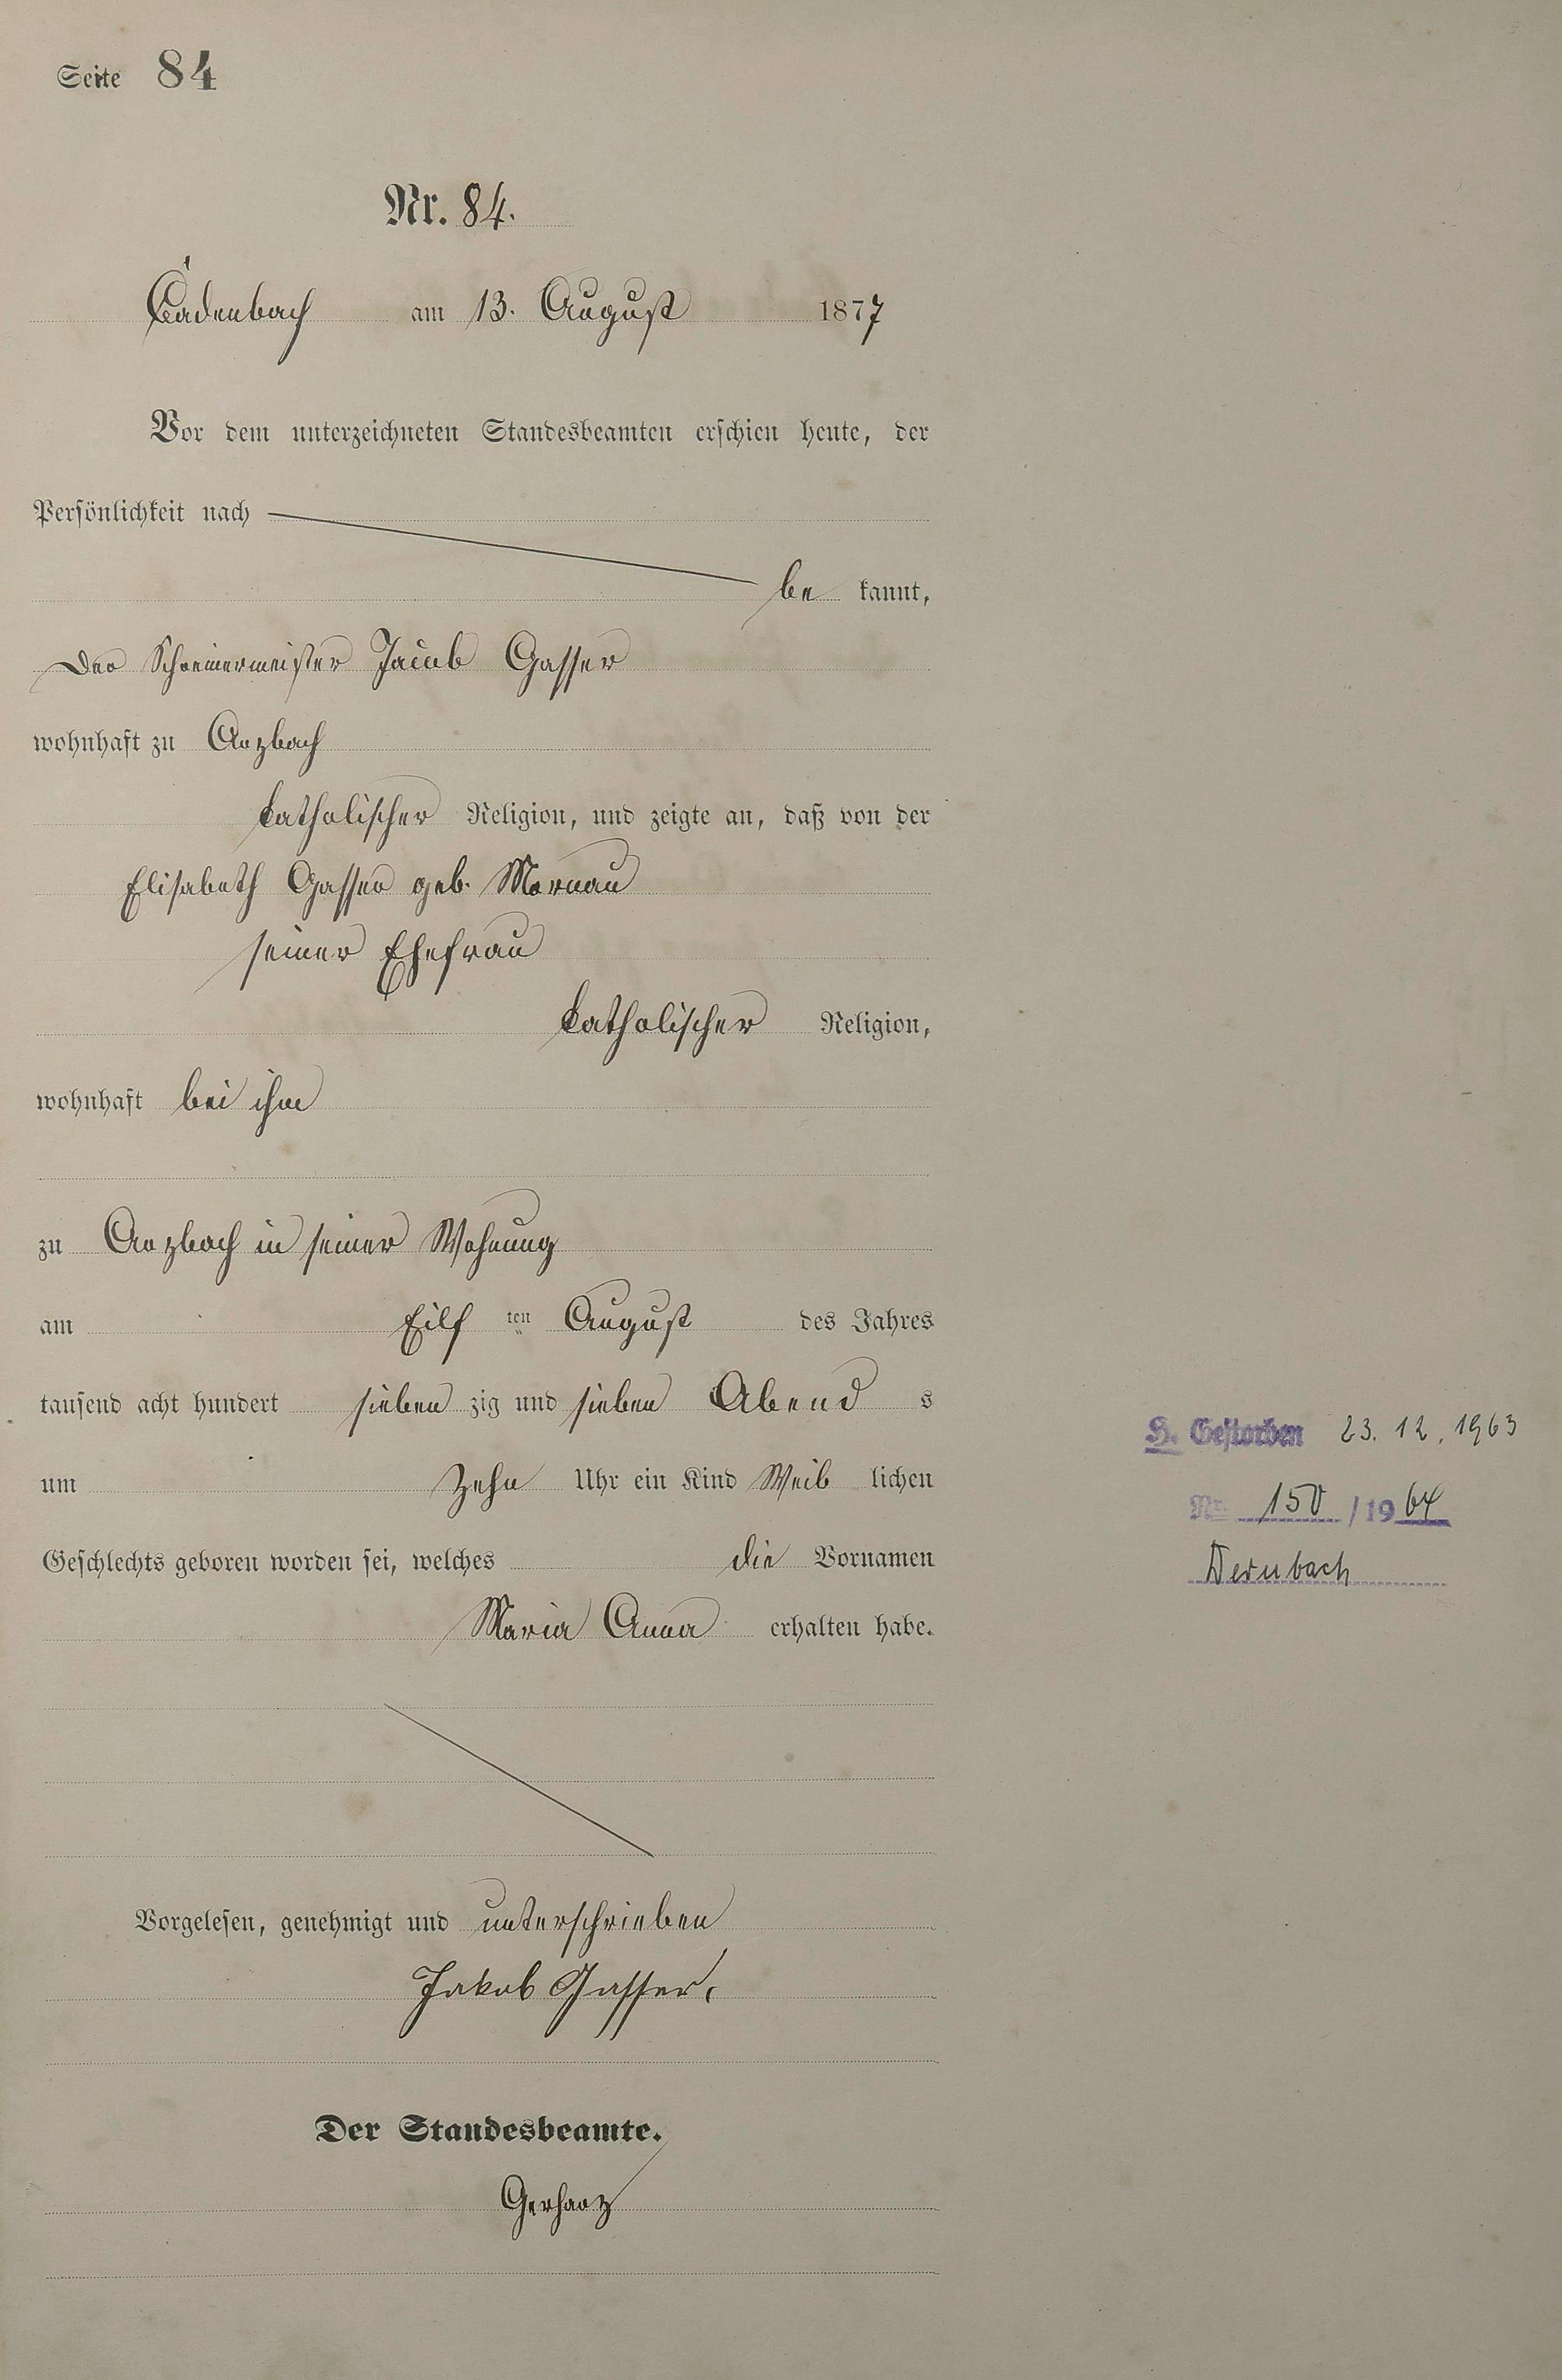 Seite 84
Nr. 84.
Cadenbach am 13. August 1877
Vor dem unterzeichneten Standesbeamten erschien heute, der
Persönlichkeit nach
be kannt,
der Schreinermeister Jacob Gasser
wohnhaft zu Arzbach
katholischer Religion, und zeigte an, daß von der
Elisabeth Gasser geb. Mornau
seiner Ehefrau
katholischer Religion,
wohnhaft bei ihm
zu Arzbach in seiner Wohnung
am Eilf ten August des Jahres
tausend acht hundert sieben zig und sieben Abend s
um Zehn Uhr ein Kind Weib lichen
Geschlechts geboren worden sei, welches die Vornamen
Maria Anna erhalten habe.
Vorgelesen, genehmigt und unterschrieben
Jakob Gasser
Der Standesbeamte.
Gerharz
H. Gestorben 23. 12. 1963
Nr. 150 / 19 64
Dernbach